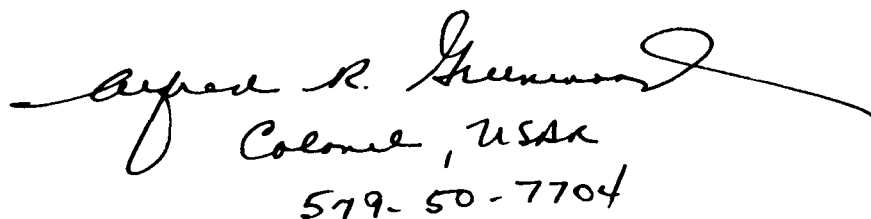 Alfred R. Greenwood
Colonel, USAR
579-50-7704